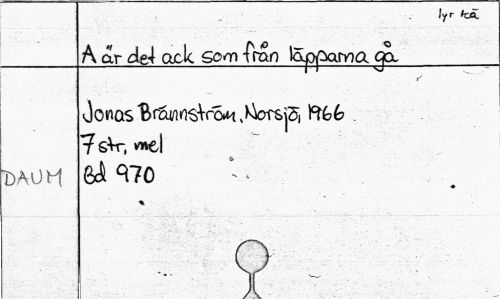 lyr kä
A är det ack som från läpparna gå
Jonas Brännström, Norsjö, 1966
7 str, mel
DAUM Bd 970